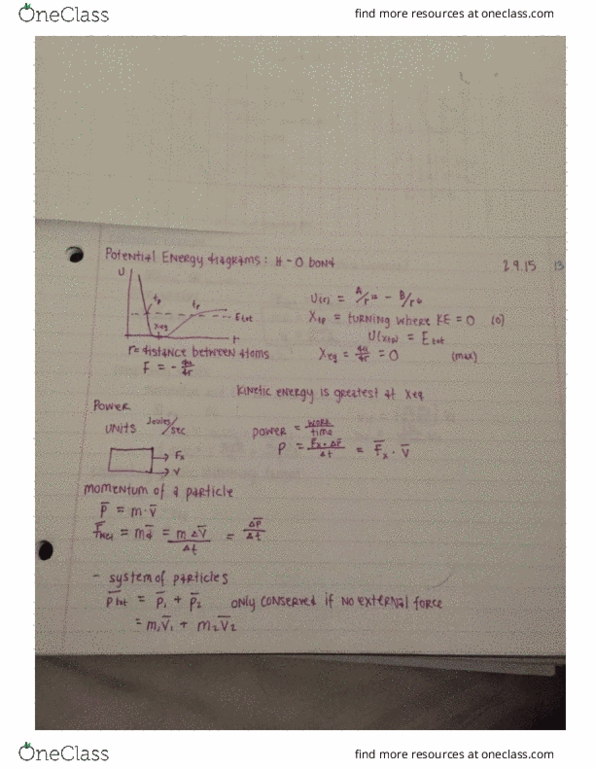 OneClass
find more resources at oneclass.com
Potential Energy diagrams: H-O bond
2.9.15 13
U
tp tp
Etot
xeq
r
r = distance between atoms
F = - du/dr
U(r) = A/r¹² - B/r⁶
Xtp = turning where KE = 0 (0)
U(xtp) = Etot
Xeq = du/dr = 0 (max)
Kinetic energy is greatest at Xeq
Power
units Joules/sec
Fx
V
power = work/time
P = Fx · Δr/Δt = F̄x · V̄
momentum of a particle
P̄ = m·V̄
F̄net = mā = mΔV̄/Δt = ΔP̄/Δt
- system of particles
P̄tot = P̄₁ + P̄₂ only conserved if no external force
= m₁V̄₁ + m₂V̄₂
OneClass
find more resources at oneclass.com